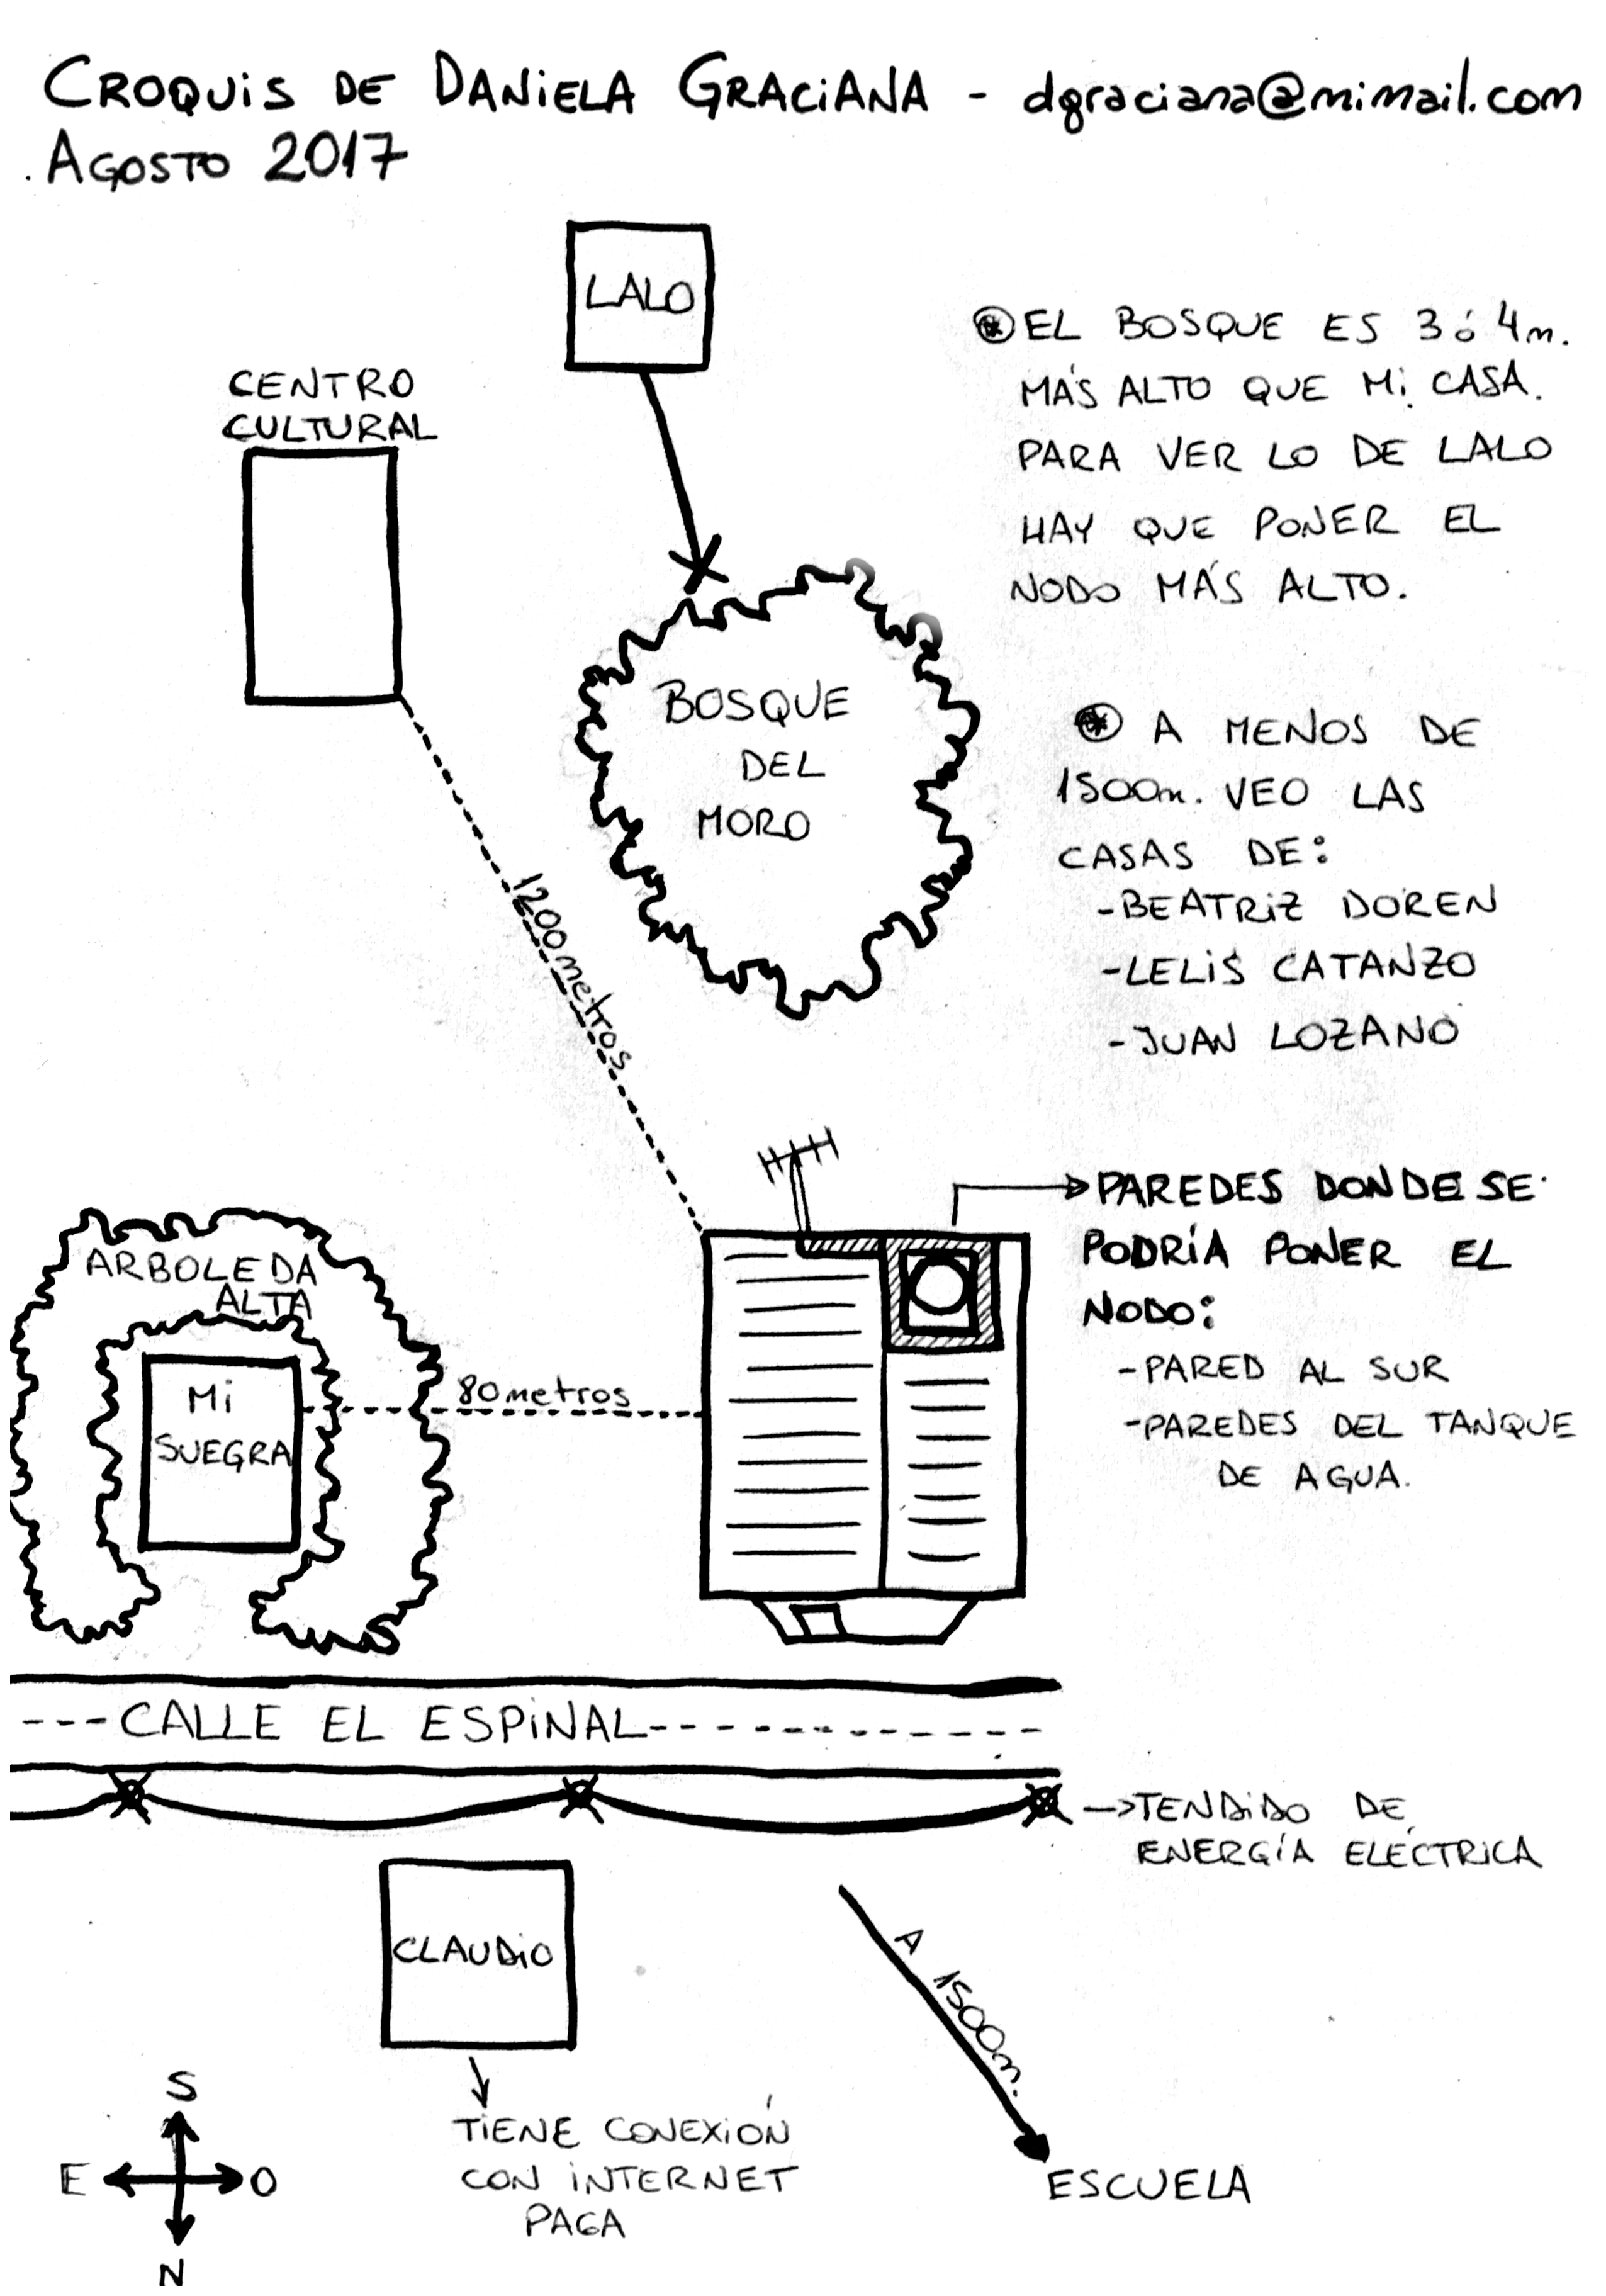 CROQUIS DE DANIELA GRACIANA - dgraciana@mimail.com
AGOSTO 2017
LALO
CENTRO
CULTURAL
⊛ EL BOSQUE ES 3 ó 4m.
MÁS ALTO QUE MI CASA.
PARA VER LO DE LALO
HAY QUE PONER EL
NODO MÁS ALTO.
BOSQUE
DEL
MORO
⊛ A MENOS DE
1500m. VEO LAS
CASAS DE:
-BEATRIZ DOREN
-LELIS CATANZO
-JUAN LOZANO
1200 metros
PAREDES DONDE SE
PODRÍA PONER EL
NODO:
-PARED AL SUR
-PAREDES DEL TANQUE
DE AGUA.
ARBOLEDA
ALTA
MI
SUEGRA
80 metros
---CALLE EL ESPINAL---
TENDIDO DE
ENERGÍA ELÉCTRICA
CLAUDIO
TIENE CONEXIÓN
CON INTERNET
PAGA
A 1500m.
ESCUELA
S
E O
N